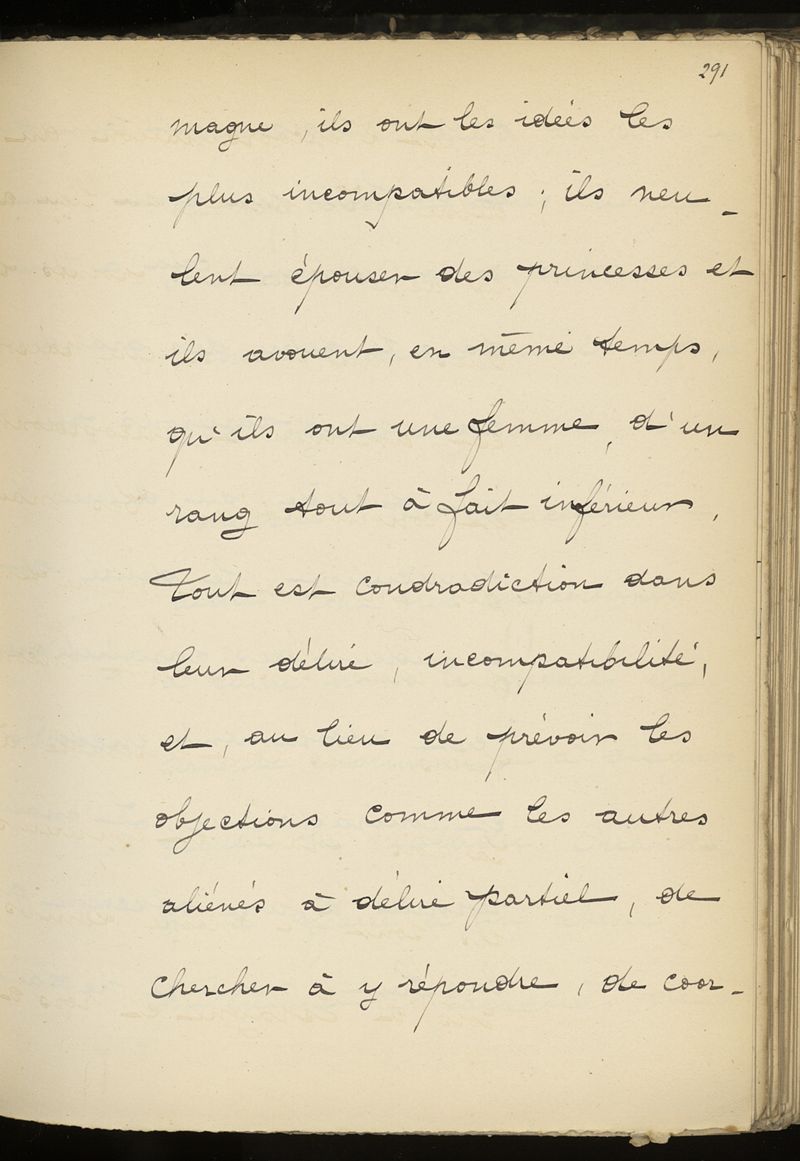 291
magne, ils ont les idées les
plus incompatibles; ils veu-
lent épouser des princesses et
ils avouent, en même temps,
qu'ils ont une femme d'un
rang tout à fait inférieur,
Tout est condradiction dans
leur délire, incompatibilité,
et, au lieu de prévoir les
objections comme les autres
aliénés à délire partiel, de
chercher à y répondre, de coor-